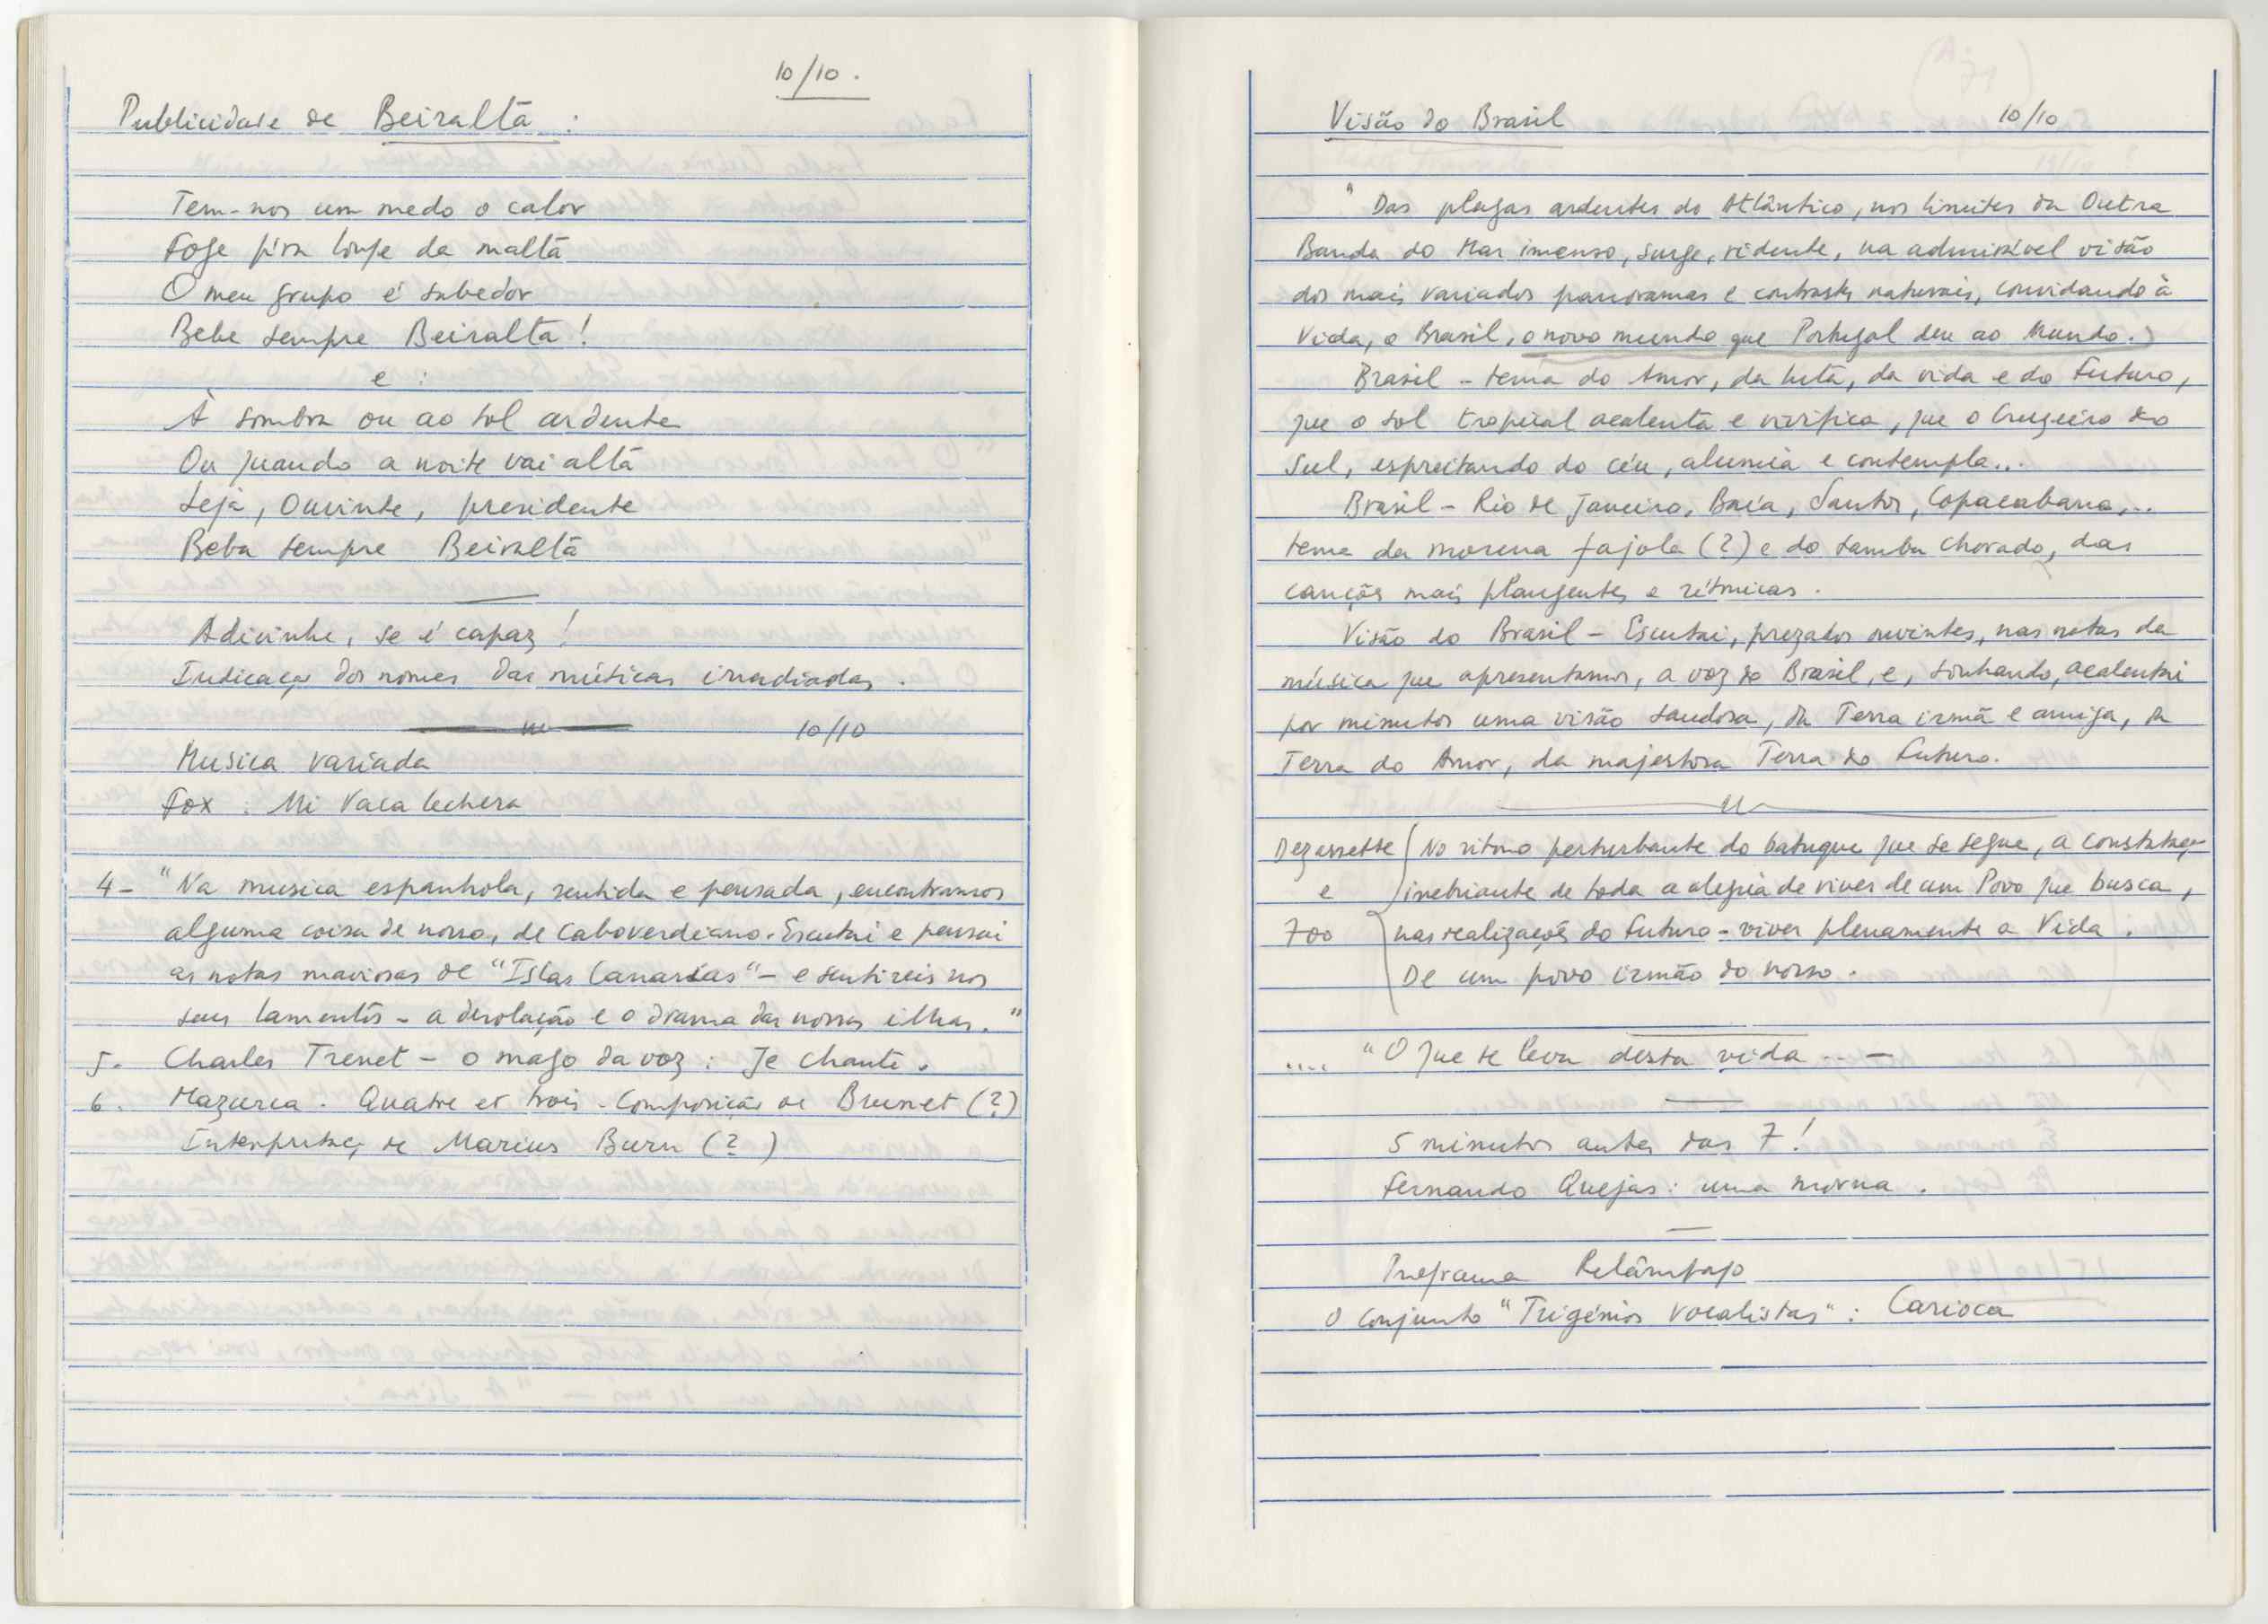 10/10.
Publicidade de Beiralta :
Tem-nos um medo o calor
Foge p'ra longe da malta
O meu grupo é sabedor
Bebe sempre Beiralta!
e :
À sombra ou ao sol ardente
Ou quando a noite vai alta
Seja, Ouvinte, presidente
Beba sempre Beiralta
Adivinhe, se é capaz!
Indicação dos nomes das músicas irradiadas.
10/10
Musica variada
Fox : Mi Vaca lechera
4- "Na musica espanhola, sentida e pensada, encontramos
alguma coisa de nosso, de caboverdiano. Escutai e pensai
as notas maviosas de "Islas Canarias" - e sentireis nos
seus lamentos - a desolação e o drama das nossas ilhas."
5. Charles Trenet - o mago da voz : Je chante.
6. Mazurca. Quatre et trois - Composição de Brunet (?)
Interpretaç de Marius Buru (?)
(A-71)
Visão do Brasil 10/10
"Das plagas ardentes do Atlântico, nos limites da Outra
Banda do Mar imenso, surge, ridente, na admirável visão
dos mais variados panoramas e contrastes naturais, convidando à
Vida, o Brasil, o novo mundo que Portugal deu ao Mundo.)
Brasil - tema do Amor, da luta, da vida e do Futuro,
que o sol tropical acalenta e vivifica, que o Cruzeiro do
Sul, espreitando do céu, alumia e contempla...
Brasil - Rio de Janeiro, Baía, Santos, Copacabana,..
tema da morena fajola (?) e do samba chorado, das
canções mais plangentes e rítmicas.
Visão do Brasil - Escutai, prezados ouvintes, nas notas da
música que apresentamos, a voz do Brasil, e, sonhando, acalentai
por minutos uma visão saudosa, da Terra irmã e amiga, da
Terra do Amor, da majestosa Terra do Futuro.
Dezassette e 700
No ritmo perturbante do batuque que se segue, a constataçao
inebriante de toda a alegria de viver de um Povo que busca,
nas realizações do Futuro - viver plenamente a Vida.
De um povo irmão do nosso.
.... "O que se leva desta vida... -
5 minutos antes das 7!
Fernando Quejas: uma morna.
Programa Relâmpago
O Conjunto "Trigémios vocalistas" : Carioca